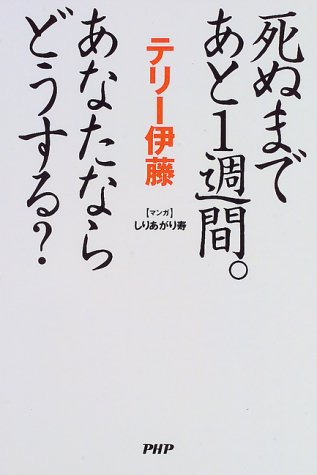 死ぬまで
あと1週間。
あなたなら
どうする?
テリー伊藤
【マンガ】
しりあがり寿
PHP